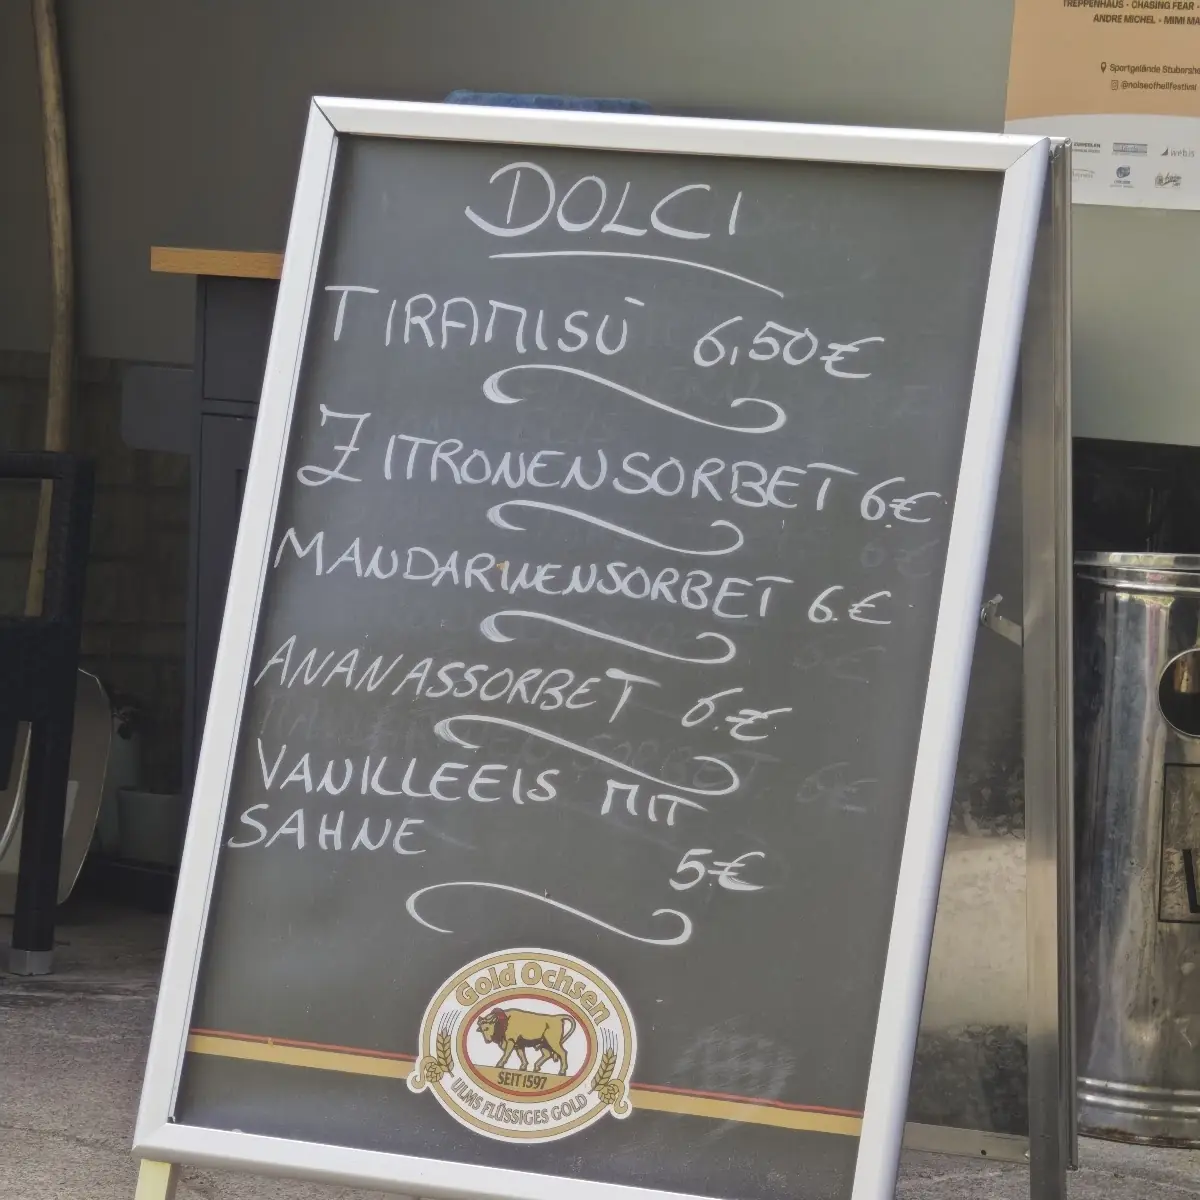 DOLCI
TIRAMISÙ 6,50€
ZITRONENSORBET 6€
MANDARINENSORBET 6.€
ANANASSORBET 6.€
VANILLEEIS MIT
SAHNE
5.€
Gold Ochsen
SEIT 1597
ULMS FLÜSSIGES GOLD
TREPPENHAUS • CHASING FEAR •
ANDRE MICHEL •
Sportgelände
@noiseofhellfestival